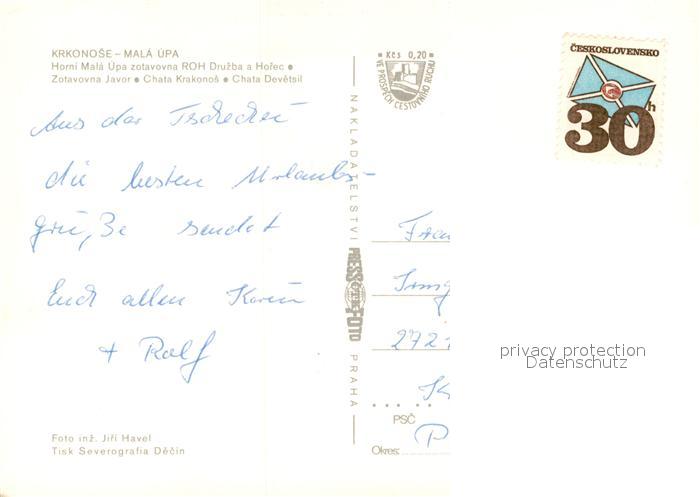 KRKONOŠE – MALÁ ÚPA
Horní Malá Úpa zotavovna ROH Družba a Hořec ●
Zotavovna Javor ● Chata Krakonoš ● Chata Devětsil
Aus der Tschechei
die besten Urlaubs-
grüße sendet
Euch allen Karin
+ Ralf
Foto inž. Jiří Havel
Tisk Severografia Děčín
NAKLADATELSTVÍ
PRESSFOTO
PRAHA
Kčs 0,20
VE PROSPĚCH CESTOVNÍHO RUCHU
ČESKOSLOVENSKO
30h
272
PSČ
Okres:
privacy protection
Datenschutz